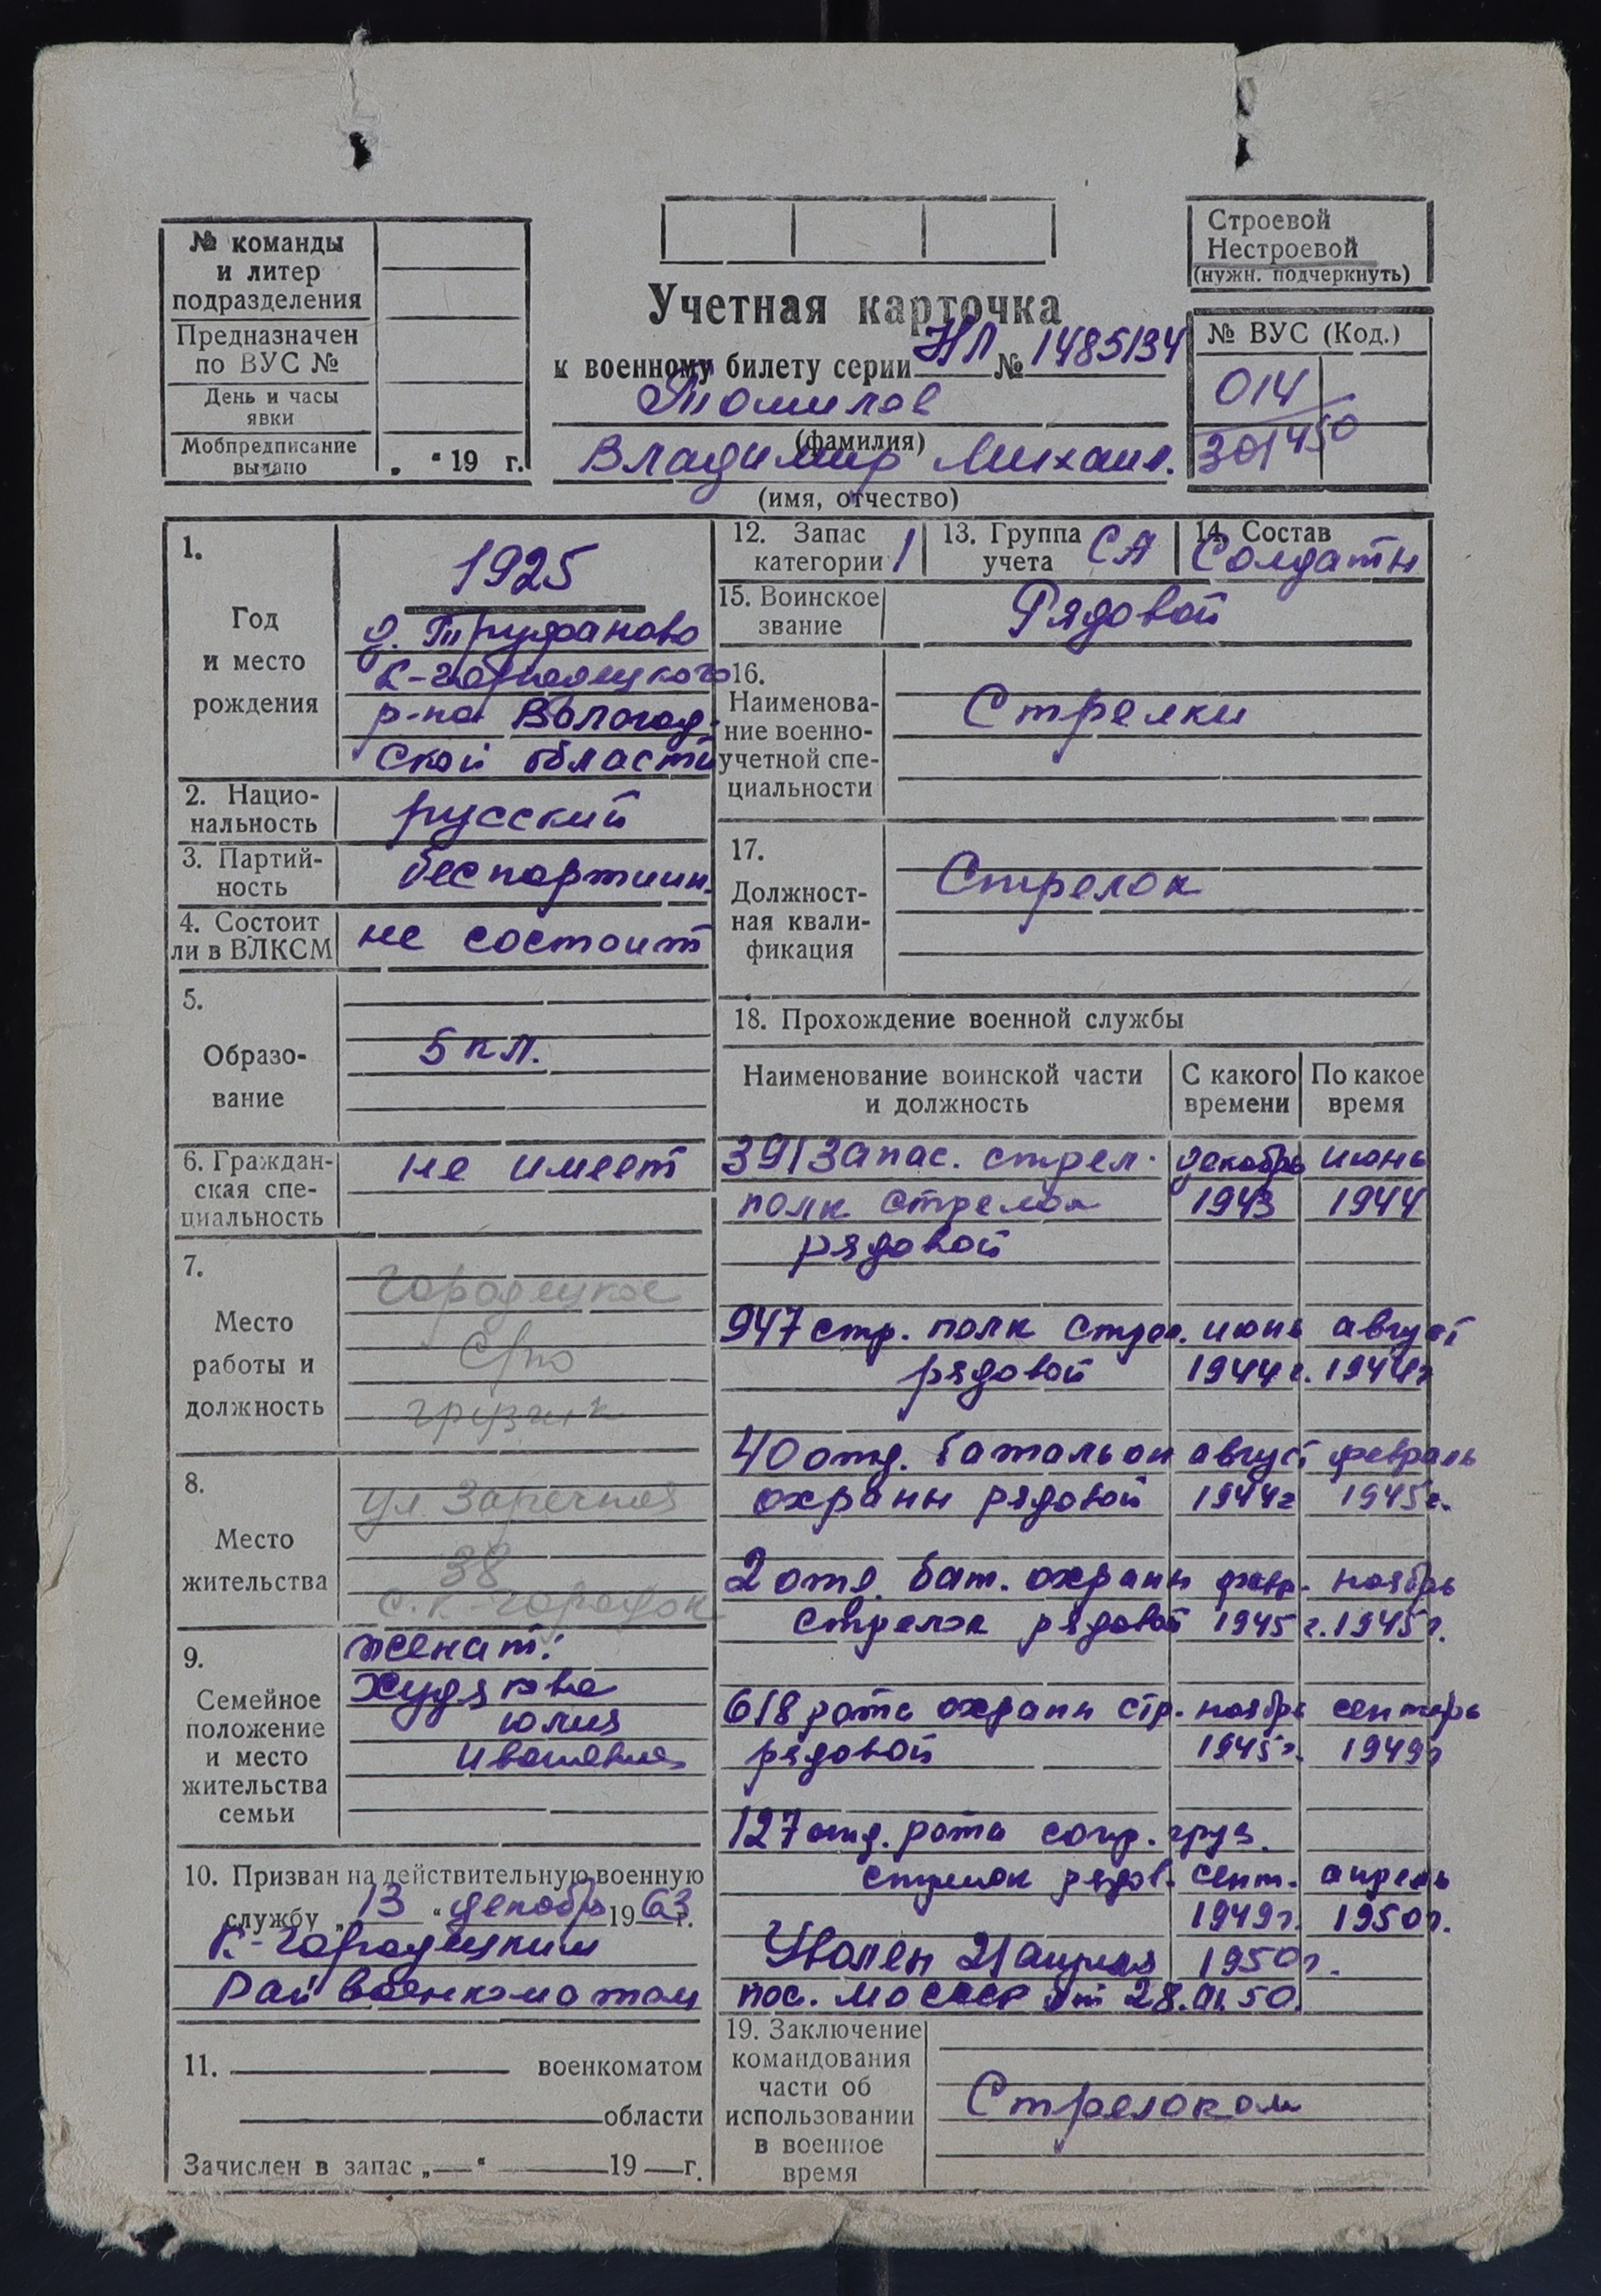 № команды
и литер
подразделения
Предназначен
по ВУС №
День и часы
явки
Мобпредписание
выдано
„ “ 19 г.
Строевой
Нестроевой
(нужн. подчеркнуть)
Учетная карточка
к военному билету серии НЛ № 1485134
Томилов
(фамилия)
Владимир Михаил.
(имя, отчество)
№ ВУС (Код.)
014
301450
1.
Год
и место
рождения
1925
д. Труфаново
К-Городецкого
р-на Вологод-
ской области
2. Нацио-
нальность
русский
3. Партий-
ность
беспартийн.
4. Состоит
ли в ВЛКСМ
не состоит
5.
Образо-
вание
5 кл.
6. Граждан-
ская спе-
циальность
не имеет
7.
Место
работы и
должность
Городецкое
Сpпо
грузчик
8.
Место
жительства
ул. Заречная
38
с. К-Городок
9.
Семейное
положение
и место
жительства
семьи
женат:
Худякова
Юлия
Ивановна
10. Призван на действительную военную
службу „ 13 “ декабр 19 63 г.
К-Городецким
Райвоенкоматом
11. военкоматом
области
Зачислен в запас „ “ 19 г.
12. Запас
категории
1
13. Группа
учета
СА
14. Состав
Солдаты
15. Воинское
звание
Рядовой
16.
Наименова-
ние военно-
учетной спе-
циальности
Стрелки
17.
Должност-
ная квали-
фикация
Стрелок
18. Прохождение военной службы
Наименование воинской части
и должность
С какого
времени
По какое
время
391 запас. стрел. декабрь июнь
полк стрелок 1943 1944
рядовой
947 стр. полк стрел. июнь август
рядовой 1944 г. 1944г
40 отд. батальон август февраль
охраны рядовой 1944г 1945г.
2 отд. бат. охраны февр. ноябрь
стрелок рядовой 1945 г. 1945г.
618 рота охраны стр. ноябрь сентябрь
рядовой 1945г. 1949г
127 отд. рота сопр. груз.
стрелок рядов. сент. апрель
1949г. 1950г.
Уволен 21 апреля 1950г.
пос. МО СССР от 28.01.50.
19. Заключение
командования
части об
использовании
в военное
время
Стрелоком